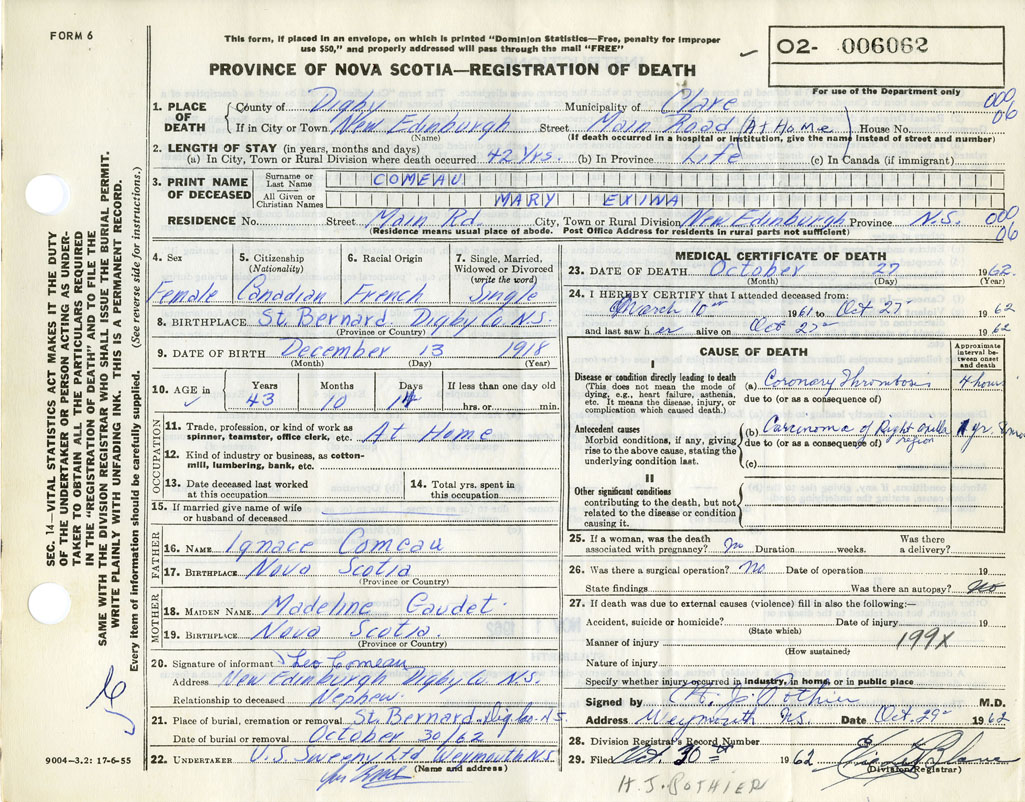 FORM 6
This form, if placed in an envelope, on which is printed "Dominion Statistics—Free, penalty for improper
use $50," and properly addressed will pass through the mail "FREE"
PROVINCE OF NOVA SCOTIA—REGISTRATION OF DEATH
O2- 006062
For use of the Department only
000
06
1. PLACE OF DEATH
County of Digby Municipality of Clare
If in City or Town New Edinburgh Street Main Road (At Home) House No.
(Name) (If death occurred in a hospital or institution, give the name instead of street and number)
2. LENGTH OF STAY (in years, months and days)
(a) In City, Town or Rural Division where death occurred 42 Yrs. (b) In Province Life (c) In Canada (if immigrant)
3. PRINT NAME OF DECEASED
Surname or Last Name COMEAU
All Given or Christian Names MARY EXINA
RESIDENCE No. Street Main Rd. City, Town or Rural Division New Edinburgh Province N.S.
000
06
(Residence means usual place of abode. Post Office Address for residents in rural parts not sufficient)
4. Sex
Female
5. Citizenship
(Nationality)
Canadian
6. Racial Origin
French
7. Single, Married,
Widowed or Divorced
(write the word)
Single
8. BIRTHPLACE St. Bernard Digby Co N.S.
(Province or Country)
9. DATE OF BIRTH December 13 1918
(Month) (Day) (Year)
10. AGE in
Years Months Days If less than one day old
43 10 14 hrs. or min.
OCCUPATION
11. Trade, profession, or kind of work as
spinner, teamster, office clerk, etc. At Home
12. Kind of industry or business, as cotton-
mill, lumbering, bank, etc.
13. Date deceased last worked
at this occupation
14. Total yrs. spent in
this occupation
15. If married give name of wife
or husband of deceased
FATHER
16. NAME Ignace Comeau
17. BIRTHPLACE Nova Scotia
(Province or Country)
MOTHER
18. MAIDEN NAME Madeline Gaudet.
19. BIRTHPLACE Nova Scotia.
(Province or Country)
20. Signature of informant Leo Comeau
Address New Edinburgh Digby Co N.S.
Relationship to deceased Nephew.
21. Place of burial, cremation or removal St. Bernard Dig. Co. N.S.
Date of burial or removal October 30/62
22. UNDERTAKER U.S. Sweeny Ltd Weymouth N.S.
(Name and address)
9004—3.2: 17-6-55
MEDICAL CERTIFICATE OF DEATH
23. DATE OF DEATH October 27 1962.
(Month) (Day) (Year)
24. I HEREBY CERTIFY that I attended deceased from:
March 10th 1961 to Oct 27th 1962
and last saw her alive on Oct 27th 1962
CAUSE OF DEATH
Approximate
interval be-
tween onset
and death
I
Disease or condition directly leading to death
(This does not mean the mode of
dying, e.g., heart failure, asthenia,
etc. It means the disease, injury, or
complication which caused death.)
(a) Coronary Thrombosis 4 hours
due to (or as a consequence of)
Antecedent causes
Morbid conditions, if any, giving
rise to the above cause, stating the
underlying condition last.
(b) Carcinoma of Right axilla region 1 yr.
due to (or as a consequence of)
(c)
II
Other significant conditions
contributing to the death, but not
related to the disease or condition
causing it.
25. If a woman, was the death
associated with pregnancy? No Duration weeks. Was there
a delivery?
26. Was there a surgical operation? No Date of operation 19
State findings Was there an autopsy? No
27. If death was due to external causes (violence) fill in also the following:—
Accident, suicide or homicide? Date of injury 19
(State which)
Manner of injury 199X
(How sustained)
Nature of injury
Specify whether injury occurred in industry, in home, or in public place
Signed by H. J. Pothier M.D.
Address Weymouth N.S. Date Oct. 29th 1962
28. Division Registrar's Record Number
29. Filed Oct. 30th 1962
(Division Registrar)
H. J. POTHIER
SEC. 14—VITAL STATISTICS ACT MAKES IT THE DUTY
OF THE UNDERTAKER OR PERSON ACTING AS UNDER-
TAKER TO OBTAIN ALL THE PARTICULARS REQUIRED
IN THE "REGISTRATION OF DEATH" AND TO FILE THE
SAME WITH THE DIVISION REGISTRAR WHO SHALL ISSUE THE BURIAL PERMIT.
WRITE PLAINLY WITH UNFADING INK. THIS IS A PERMANENT RECORD.
Every item of information should be carefully supplied. (See reverse side for instructions.)